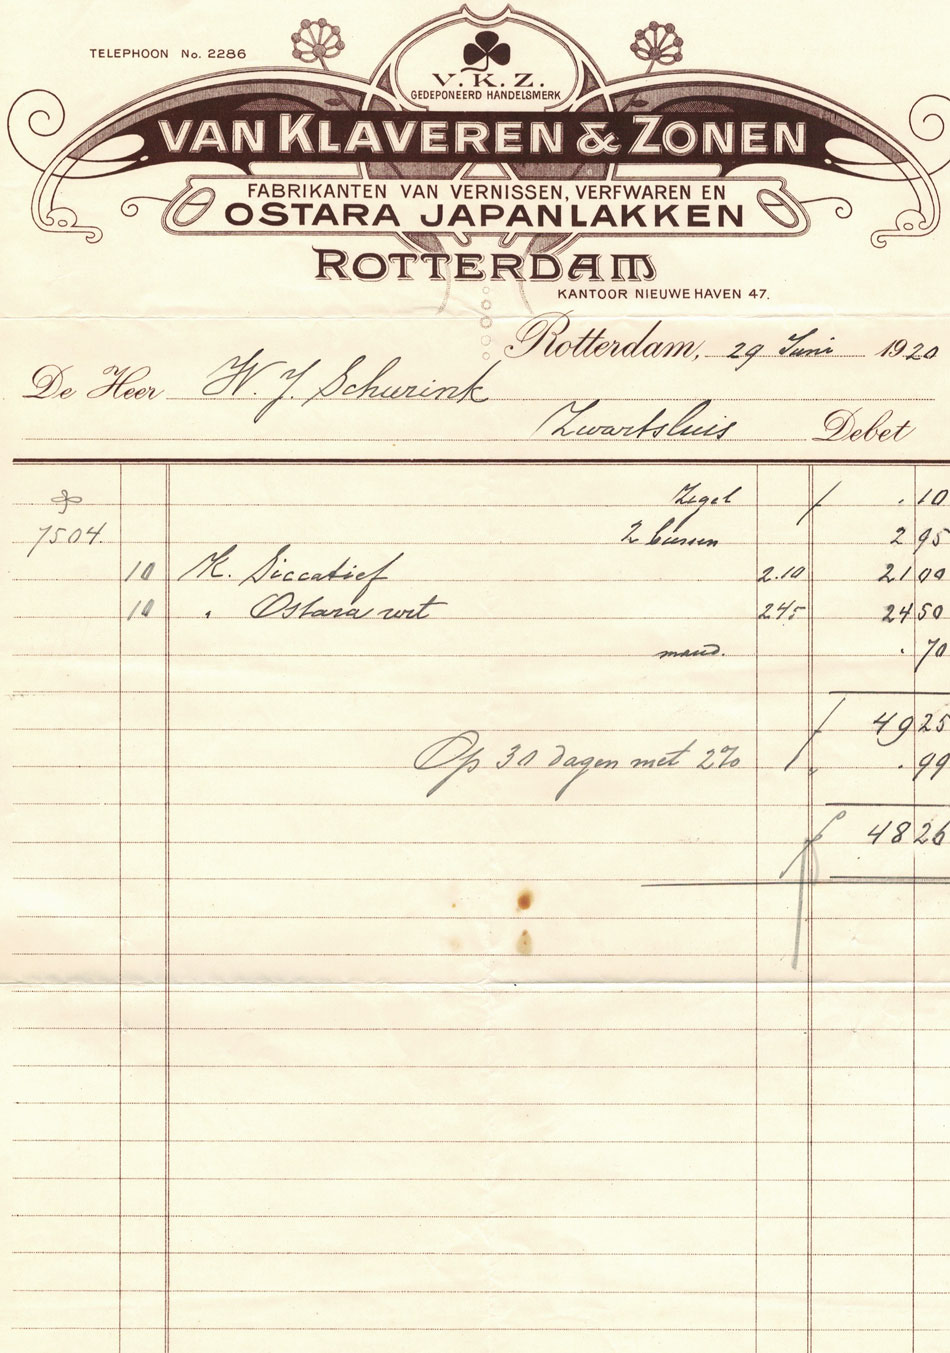 TELEPHOON No. 2286
V. K. Z.
GEDEPONEERD HANDELSMERK
VAN KLAVEREN & ZONEN
FABRIKANTEN VAN VERNISSEN, VERFWAREN EN
OSTARA JAPANLAKKEN
ROTTERDAM
KANTOOR NIEUWE HAVEN 47.
Rotterdam, 29 Juni 1920
De Heer W. J. Schurink
Zwartsluis Debet
Zegel f . 10
7504. 2 bussen 2 95
10 K. Siccatief 2.10 21 00
10 " Ostara wit 245 24 50
mand. . 70
f 49 25
Op 30 dagen met 2% " . 99
f 48 26